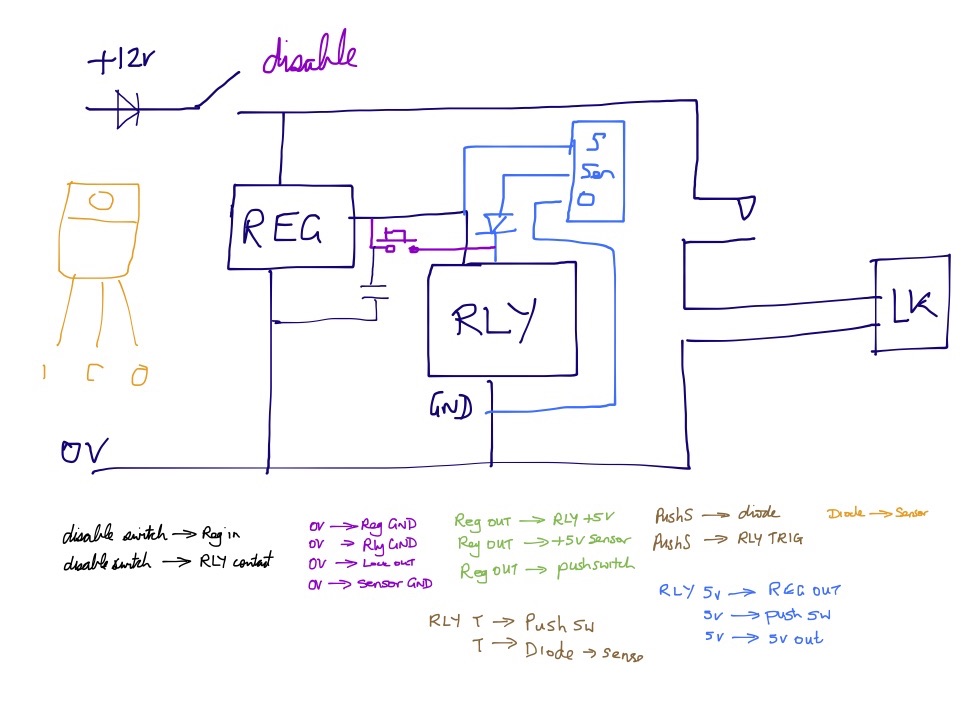 +12v
disable
5
Sen
0
REG
RLY
LK
I C O
GND
0V
disable switch → Reg in
disable switch → RLY contact
0V → Reg GND
0V → Rly GND
0V → Lock out
0V → Sensor GND
Reg OUT → RLY +5V
Reg OUT → +5V Sensor
Reg OUT → push switch
PushS → diode
PushS → RLY TRIG
Diode → Sensor
RLY 5v → REG OUT
5v → push sw
5v → 5v out
RLY T → Push SW
T → Diode → sense